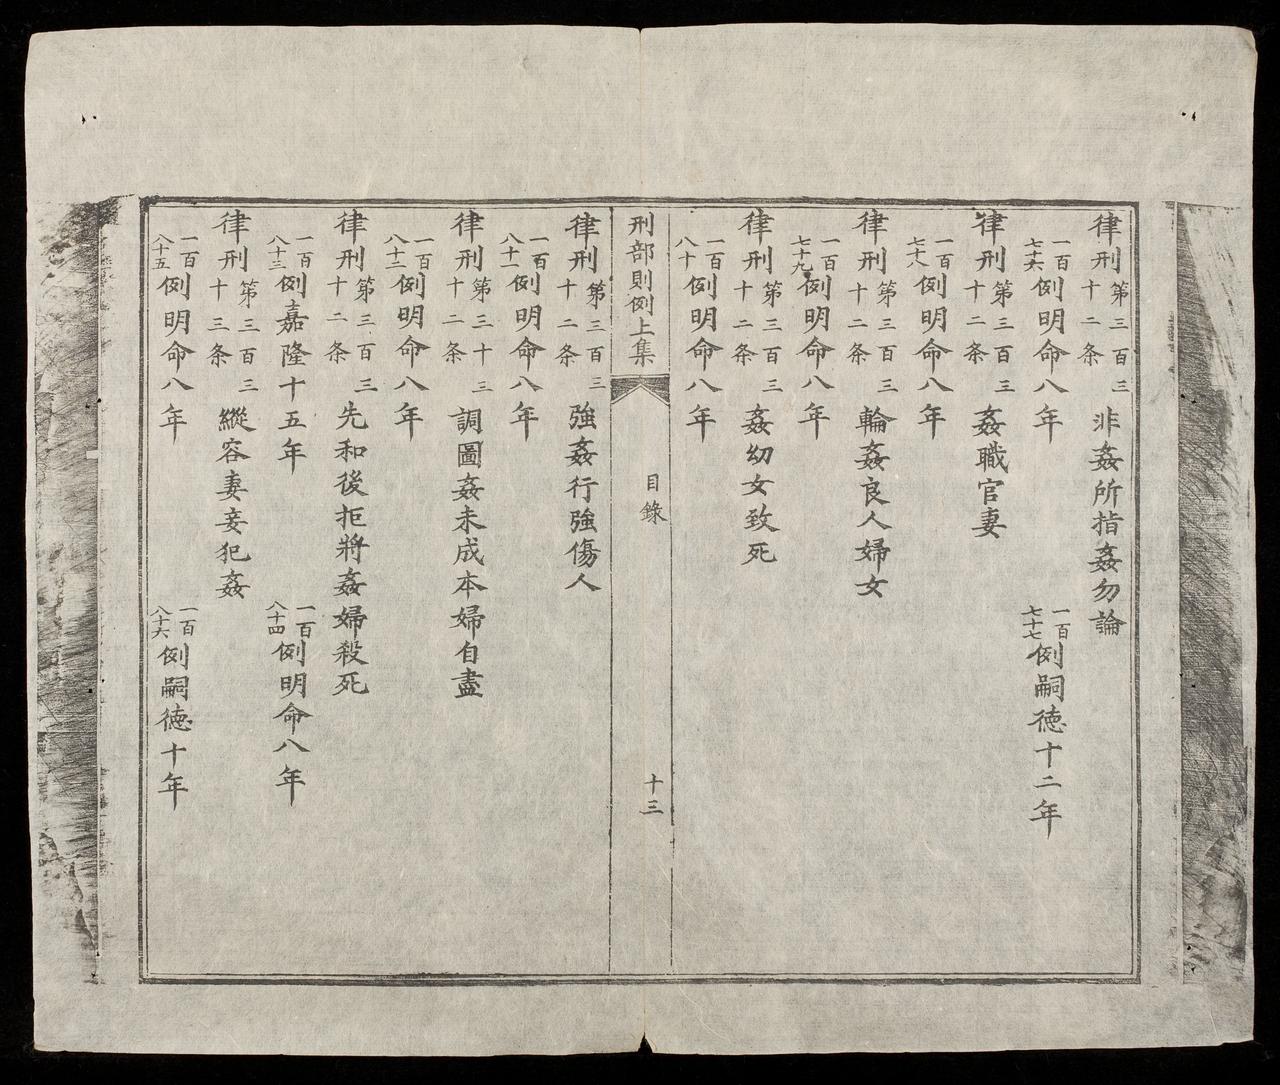 律刑第三百三十二条 非姦所指姦勿論
一百七十六例明命八年 一百七十七例嗣徳十二年
律刑第三百三十二条 姦職官妻
一百七十八例明命八年
律刑第三百三十二条 輪姦良人婦女
一百七十九例明命八年
律刑第三百三十二条 姦幼女致死
一百八十例明命八年
刑部則例上集 目錄 十三
律刑第三百三十二条 強姦行強傷人
一百八十一例明命八年
律刑第三十三十二条 調圖姦未成本婦自盡
一百八十二例明命八年
律刑第三百三十二条 先和後拒將姦婦殺死
一百八十三例嘉隆十五年 一百八十四例明命八年
律刑第三百三十三条 縱容妻妾犯姦
一百八十五例明命八年 一百八十六例嗣徳十年